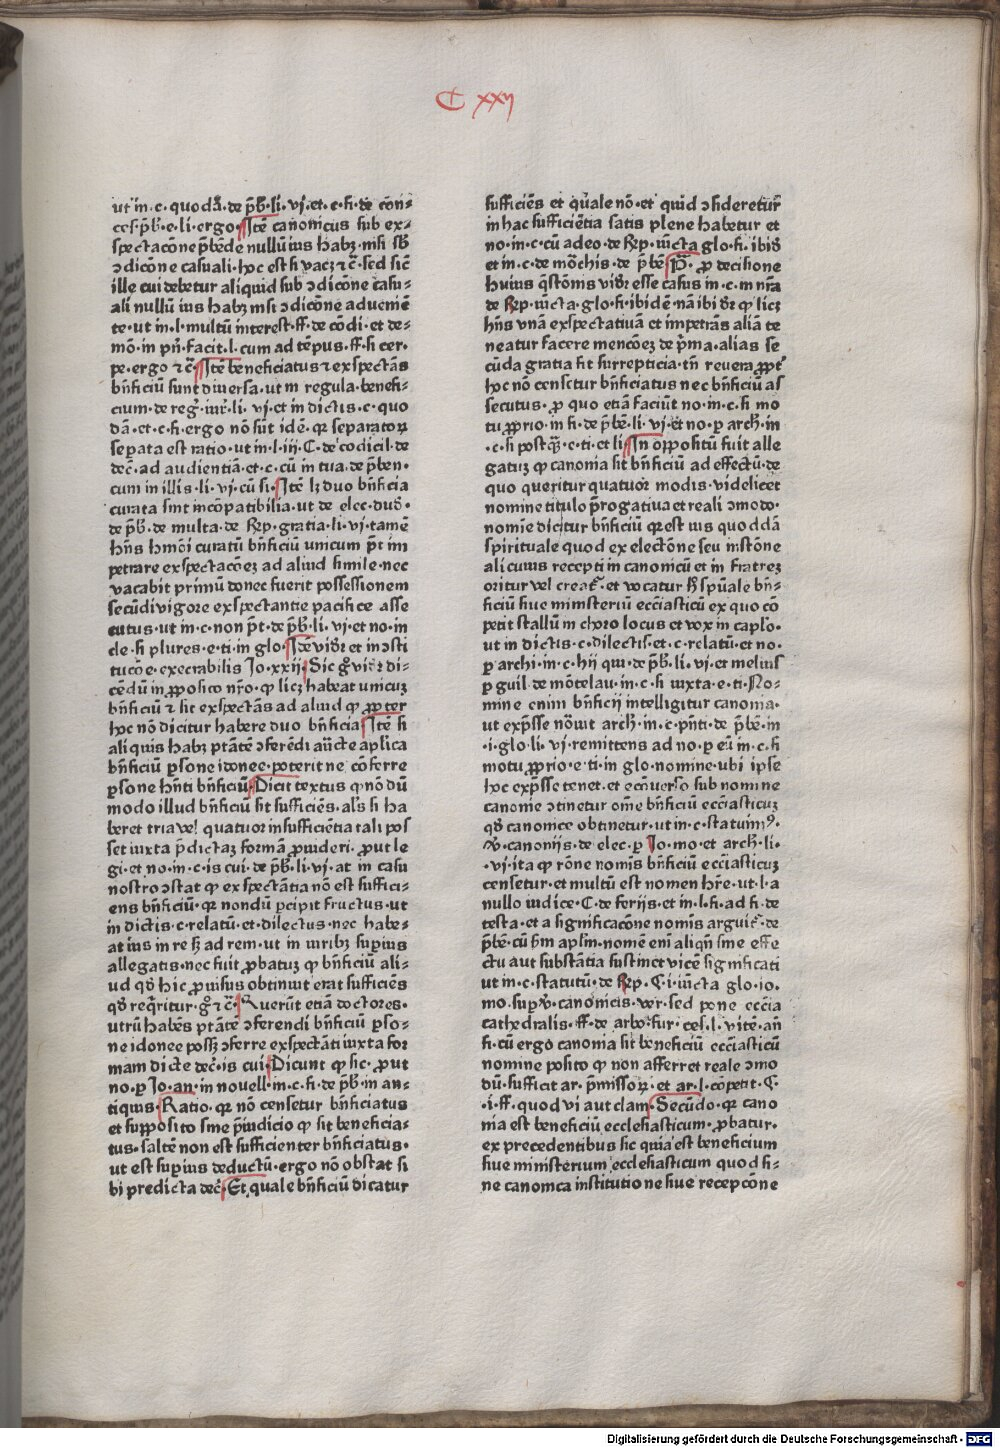 C xxij
ut in·c·quodā·de p̄b̄·li·vj·et·c·fi·de cōn⸗
ces·p̄b̄·e·li·ergo·Itē canonicus sub ex⸗
spectacōne p̄bēde nullū ius habꝫ nisi sb̄
ↄdicōne casuali·hoc est si vacꝫ ⁊c̄·sed sic̄
ille cui debetur aliquid sub ↄdicōne casu⸗
ali nullū ius habꝫ nisi ↄdicōne aduenıē
te·ut in·l·multū interest·ff·de cōdi·et de⸗
mō·in pn̄·facit·l·cum ad tēpus·ff·si cer·
pe·ergo ⁊c̄·Itē beneficiatus ⁊ exspectās
bn̄ficiū sunt diuersa·ut in regula·benefi⸗
cium·de reg̃·iur̃·li·vj·et in dictis·c·quo
dā·et·c·fi·ergo nō sūt idē·qꝛ separatoꝝ
separata est ratio·ut in·l·iij·C·de codicil·de
dec̄·ad audientiā·et·c·cū in tua·de p̄ben·
cum in illis·li·vj·cū si·Itē lꝫ duo bn̄ficia
curata sint incōpatibilia·ut de elec·dud̄·
de p̄b̄·de multa·de Rep·gratia·li·vj·tamē
hn̄s hmōi curatū bn̄ficiū unicum p̄t im
petrare exspectacōeꝫ ad aliud simile·nec
vacabit primū donec fuerit possessionem
secūdi vigore exspectantie pacifice asse
cutus·ut in·c·non p̄t·de p̄b̄·li·vj·et no·in
cle·si plures·e·ti·in glo·Idē vidr̄ et in ↄsti
tucōe·execrabilis Jo·xxij·Sic gͥ vidr̄ di⸗
cēdū in ꝓposito nr̄o·ꝙ licꝫ habeat unicuꝫ
bn̄ficiū ⁊ sit exspectās ad aliud ꝙ ꝓpter
hoc nō dicitur habere duo bn̄ficia·Itē si
aliquis habꝫ ptātē ↄferēdi auc̄te aplica
bn̄ficiū ꝑsone idonee·poterit ne cōferre
ꝑsone hn̄ti bn̄ficiū·Dicit textus ꝙ nō dū
modo illud bn̄ficiū sit sufficiēs·al's si ha
beret tria vel quatuor insufficiētia tali pos
set iuxta p̄dictaꝫ formā ꝓuideri·ꝓut le
gi·et no·in·c·is cui·de p̄b̄·li·vj·at in casu
nostro ↄstat ꝙ exspectātia nō est suffici⸗
ens bn̄ficiū·qꝛ nondū ꝑcipit fructus·ut
in dictis·c·relatū·et·dilectus·nec habe⸗
at ius in re sꝫ ad rem·ut in iuribꝫ suꝑius
allegatis·nec fuit ꝓbatuꝫ ꝙ bn̄ficiū ali⸗
ud qd̄ hic ꝓuisus obtinuit erat sufficiēs
qd̄ req̄ritur·gͥ ⁊c̄·Querūt etiā doctores·
utrū habēs ptātē ↄferendi bn̄ficiū ꝑso⸗
ne idonee possꝫ ↄferre exspectāti iuxta for
mam dicte dec̄·is cui·Dicunt ꝙ sic·ꝓut
no·ꝑ Jo·an·in nouell·in·c·si·de p̄b̄·in an⸗
tiquis·Ratio·qꝛ nō censetur bn̄ficiatus
et supposito sine p̄iudicio ꝙ sit beneficia⸗
tus·saltē non est sufficienter bn̄ficiatus·
ut est suꝑius deductū·ergo nō obstat si
bi predicta dec̄·Et quale bn̄ficiū dicatur
sufficiēs et q̄uale nō·et quid ↄsideretur̄
in hac sufficiētia satis plene habetur et
no·in·c·cū adeo·de Rep·iūcta glo·fi·ibid̄
et in·c·de mōchis·de p̄bē·Pͥ·ꝓ decisione
huius q̄stōnis vidr̄ esse casus in·c·in nr̄a
de Rep·iūcta·glo·fi·ibidē·nā ibi dr̄ ꝙ licꝫ
hn̄s vnā exspectatiuā et impetrās aliā te
neatur facere mencōeꝫ de p̄ma·alias se
cūda gratia sit surrepticia·tn̄ reuera ꝓpt̄
hoc nō censetur bn̄ficiatus nec bn̄ficiū as
secutus·ꝓ quo etiā faciūt no·in·c·si mo
tu ꝓprio·in fi·de p̄bē·li·vj·et no·ꝑ arch̄·in
·c·si postq̄·e·ti·et li·In oppositū fuit alle
gatuꝫ ꝙ canonia sit bn̄ficiū ad effectū·de
quo queritur quatuor modis·videlicet
nomine titulo p̄rogatiua et reali ↄmodo·
nomīe dicitur bn̄ficiū qꝛ est ius quoddā
spirituale quod ex electōne seu instōne
alicuius recepti in canonicū et in fratreꝫ
oritur vel creat̄·et vocatur hͦ spūale bn̄⸗
ficiū siue ministeriū ecc̄iasticū ex quo cō
petit stallū in choro locus et vox in capl'o·
ut in dictis·c·dilectis·et·c·relatū·et no·
ꝑ archi·in·c·hij qui·de p̄b̄·li·vj·et melius
ꝑ guil·de mōtelau·in·c·si iuxta·e·ti·No⸗
mine enim bn̄ficij intelligitur canonia·
ut exp̄sse nōuit arch̄·in·c·pn̄ti·de p̄bē·in
·i·glo·li·vj·remittens ad no·ꝑ eū in·c·si
motu ꝓprio·e·ti·in glo·nomine·ubi ipse
hoc exp̄sse tenet·et ecōuerso sub nomine
canonie ↄtinetur om̄e bn̄ficiū ecc̄iasticuꝫ
qd̄ canonice obtinetur·ut in·c·statuimꝰ·
v̄·canonijs·de elec·ꝑ Jo·mo·et arch̄·li·
·vj·ita ꝙ rōne nomīs bn̄ficiū ecc̄iasticuꝫ
censetur·et multū est nomen hr̄e·ut·l·a
nullo iudice·C·de ferijs·et in·l·fi·ad fi·de
testa·et a significacōne nomīs arguit̄·de
p̄bē·cū scd̄m apl'm·nomē enī aliqn̄ sine effe
ctu aut substātia sustinet vicē significati
ut in·c·statutū·de Rep·C·i·iūcta glo·io·
mo·suꝑ v̄·canonicis·ver·sed pone ecc̄ia
cathedralis·ff·de arbo·fur·ces·l·vitē·an
si·cū ergo canonia sit beneficiū ecc̄iasticū
nomine posito ꝙ non afferret reale ↄmo
dū·sufficit ar·p̄missoꝝ·et ar·l·cōpetit·C·
·i·ff·quod vi aut clam·Secūdo·qꝛ cano
nia est beneficiū ecclesiasticum·ꝓbatur·
ex precedentibus sic quia est beneficium
siue ministerium ecclesiasticum quod si⸗
ne canonica institutione siue recepcōne
Digitalisierung gefördert durch die Deutsche Forschungsgemeinschaft - DFG